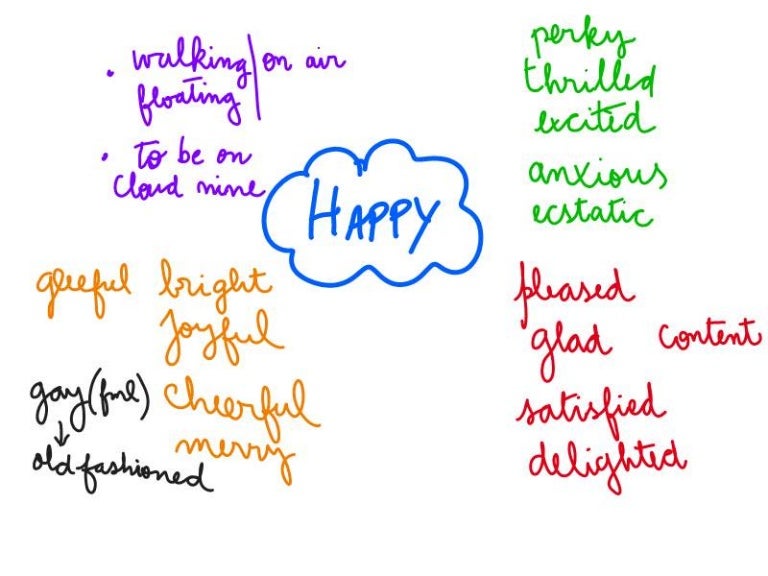 • walking on air
floating
• to be on
cloud nine
HAPPY
perky
thrilled
excited
anxious
ecstatic
gleeful bright
joyful
cheerful
merry
gay (fml)
↓
old-fashioned
pleased
glad content
satisfied
delighted